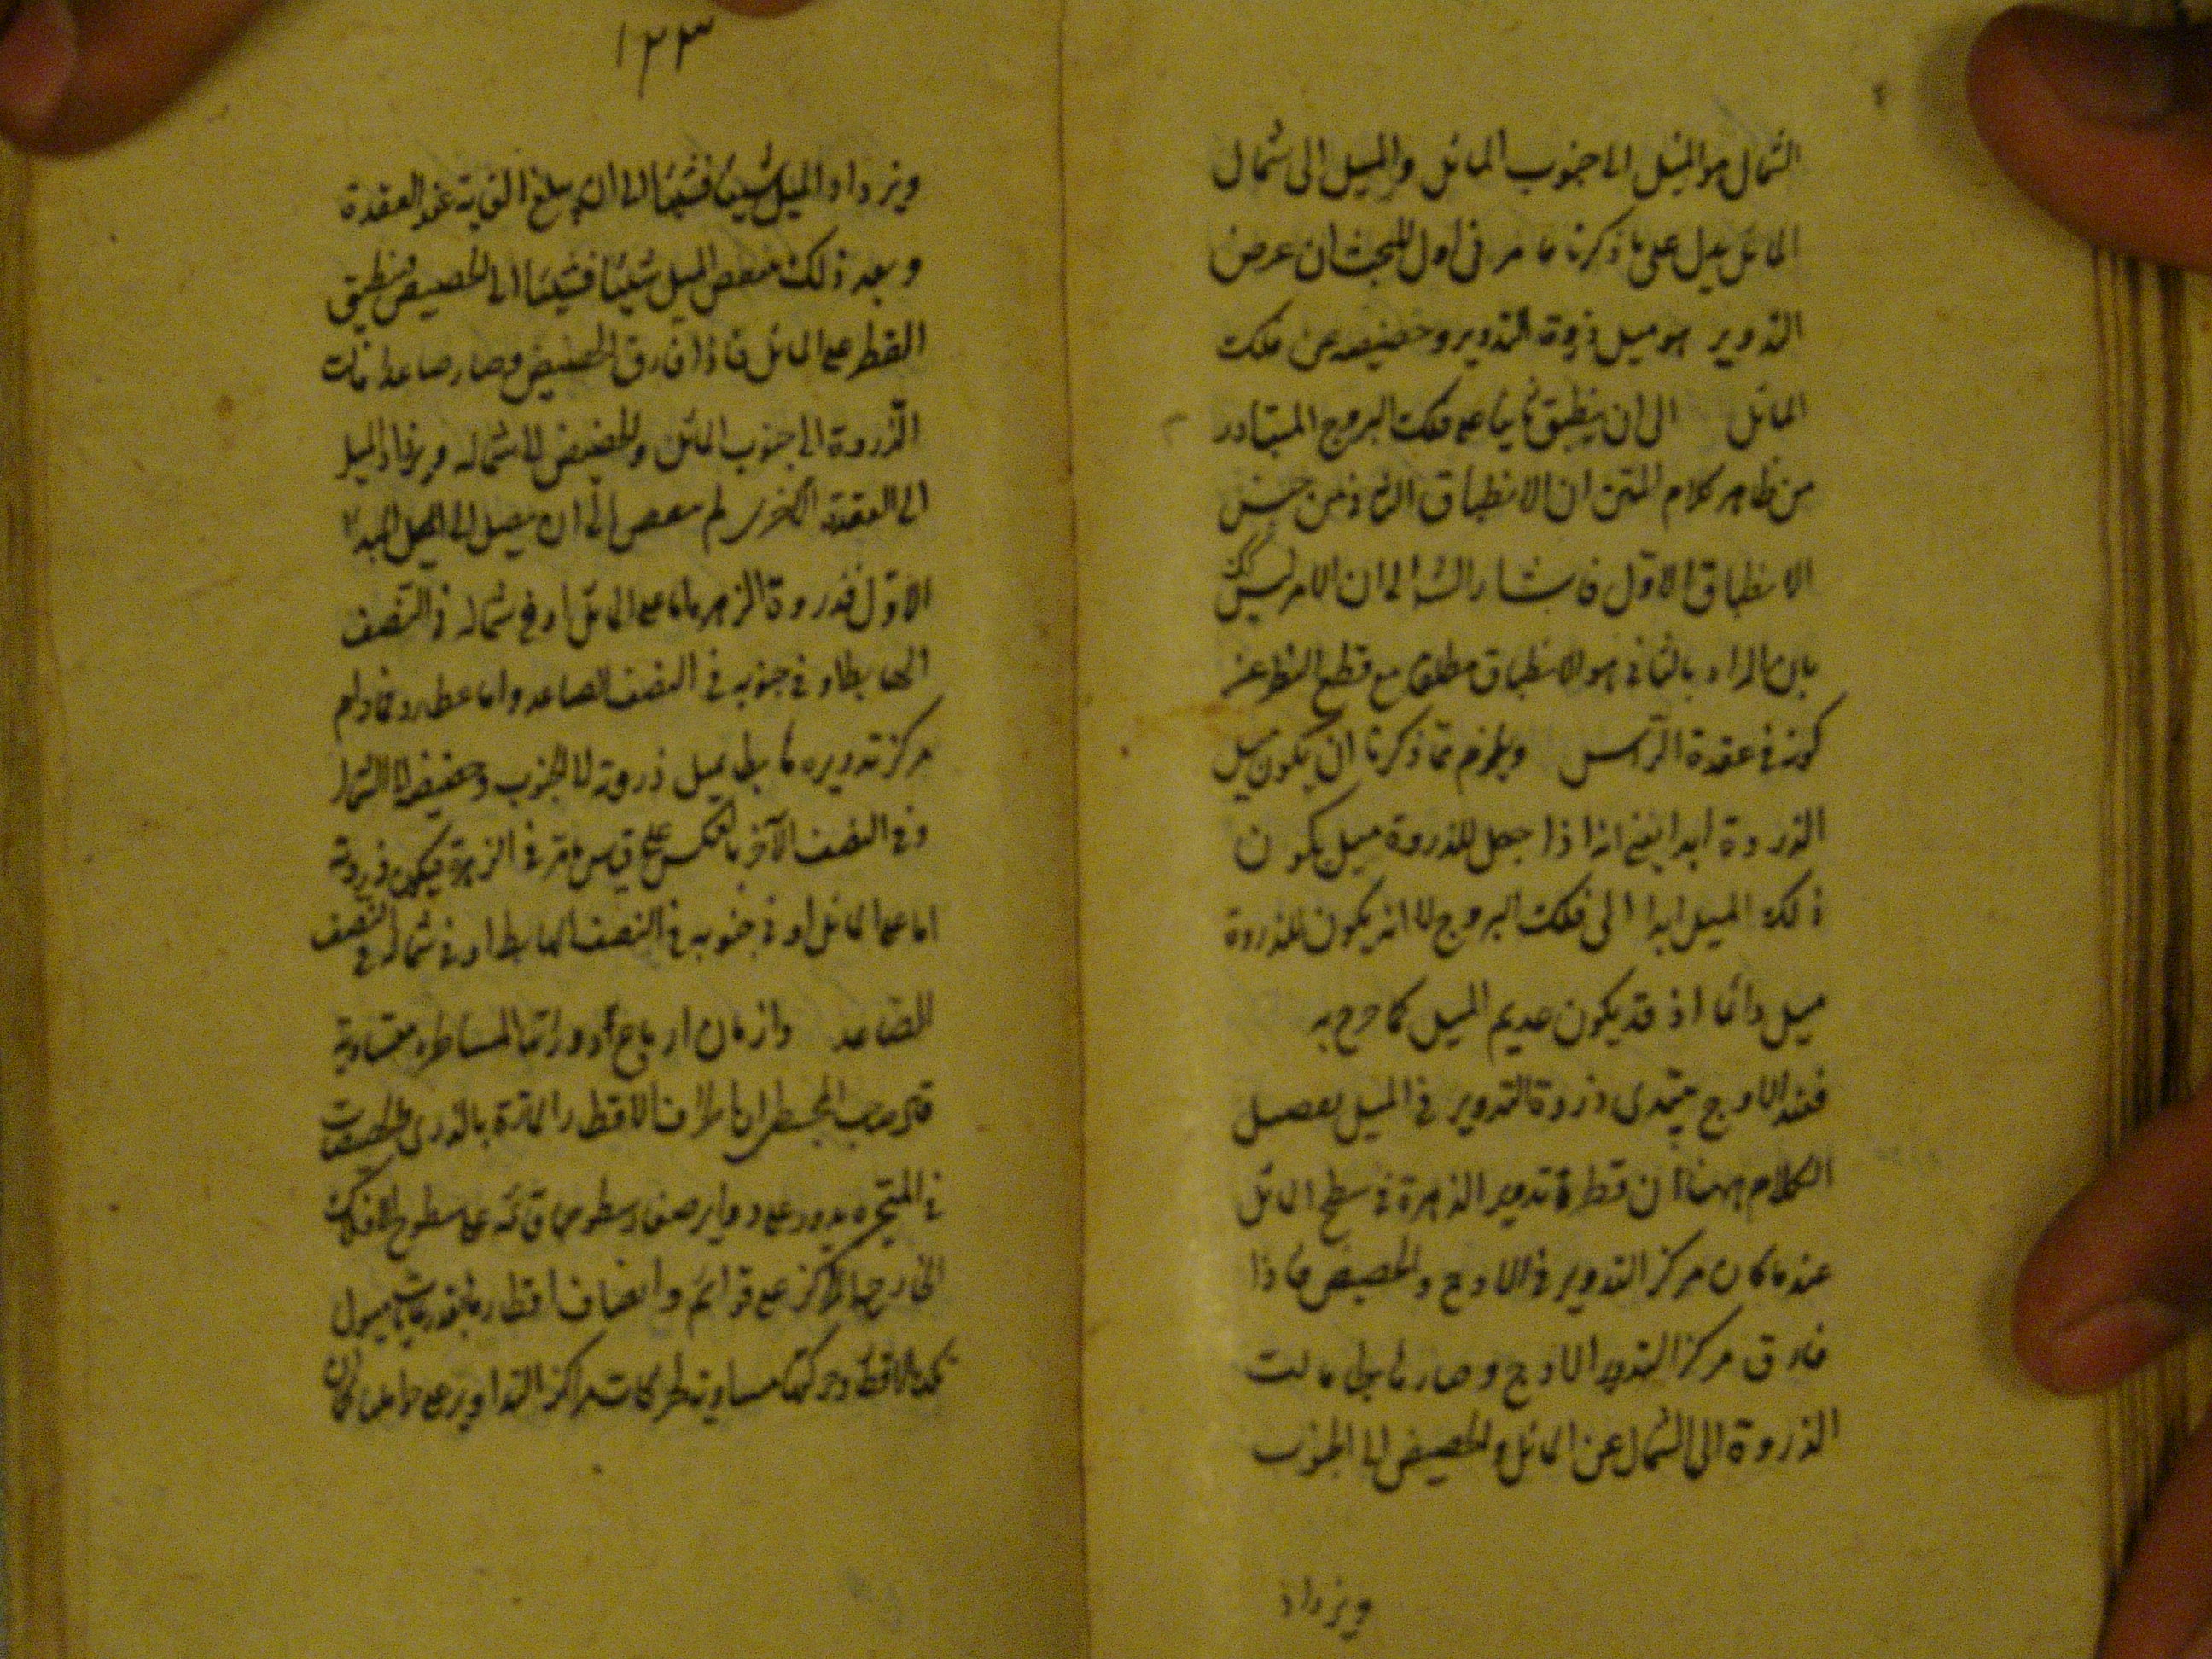 الشمال هو الميل الى جنوب المائل والميل الى شمال
المائل يدل على ما ذكرنا ما مر فى اول المبحث ان عرض
التدوير هو ميل ذروة التدوير وحضيضه عن فلك
المائل الى ان ينطبق ثانيا على فلك البروج المتبادر
من ظاهر كلام المتن ان الانطباق الثانى من جنس
الانطباق الاول فاشار الشه الى ان الامر ليس كك
بان المراد بالثانى هو الانطباق مطلقا مع قطع النظر عن
كونه فى عقدة الرأس ويلزم مما ذكرنا ان يكون ميل
الذروة ابدا يعنى انه اذا جعل للذروة ميل يكون
ذلك الميل ابدا الى فلك البروج لا انه يكون للذروة
ميل دائما اذ قد يكون عديم الميل كما صرح به
فعند الاوج يبتدى ذروة التدوير فى الميل تفصيل
الكلام ههنا ان قطر تدوير الزهرة فى سطح المائل
عند ما كان مركز التدوير فى الاوج والحضيض فاذا
فارق مركز التدوير الاوج وصار هابطا مالت
الذروة الى الشمال عن المائل والحضيض الى الجنوب
ويزداد
١٢٣
ويزداد الميل شيئا فشيئا الى ان يبلغ الغاية عند العقدة
وبعد ذلك ينقص الميل شيئا فشيئا الى الحضيض فينطبق
القطر على المائل فاذا فارق الحضيض وصار صاعدا مالت
الذروة الى جنوب المائل والحضيض الى شماله ويزداد الميل
الى العقدة الاخرى ثم ينقص الى ان يصل الى المحل المبدا
الاول فذروة الزهرة اما على المائل او فى شماله فى النصف
الهابط او فى جنوبه فى النصف الصاعد واما عطارد فما دام
مركز تدويره هابطا يميل ذروته الى الجنوب وحضيضه الى الشمال
وفى النصف الآخر بالعكس على قياس ما مر فى الزهرة فيكون ذروته
اما على المائل او فى جنوبه فى النصف الهابط او فى شماله فى النصف
الصاعد وازمان ارباع دوراتها متساوية
قال صاحب المجسطى ان اطراف الاقطار المارة بالذرى والحضيضات
فى المتحيرة يدور على دواير صغار سطوحها قائمة على سطوح الافلاك
الخارجة المراكز على قوائم وانصاف اقطارها بقدر غايات ميول
تلك الاقطار وحركتها مساوية لحركات مراكز التداوير على حواملها